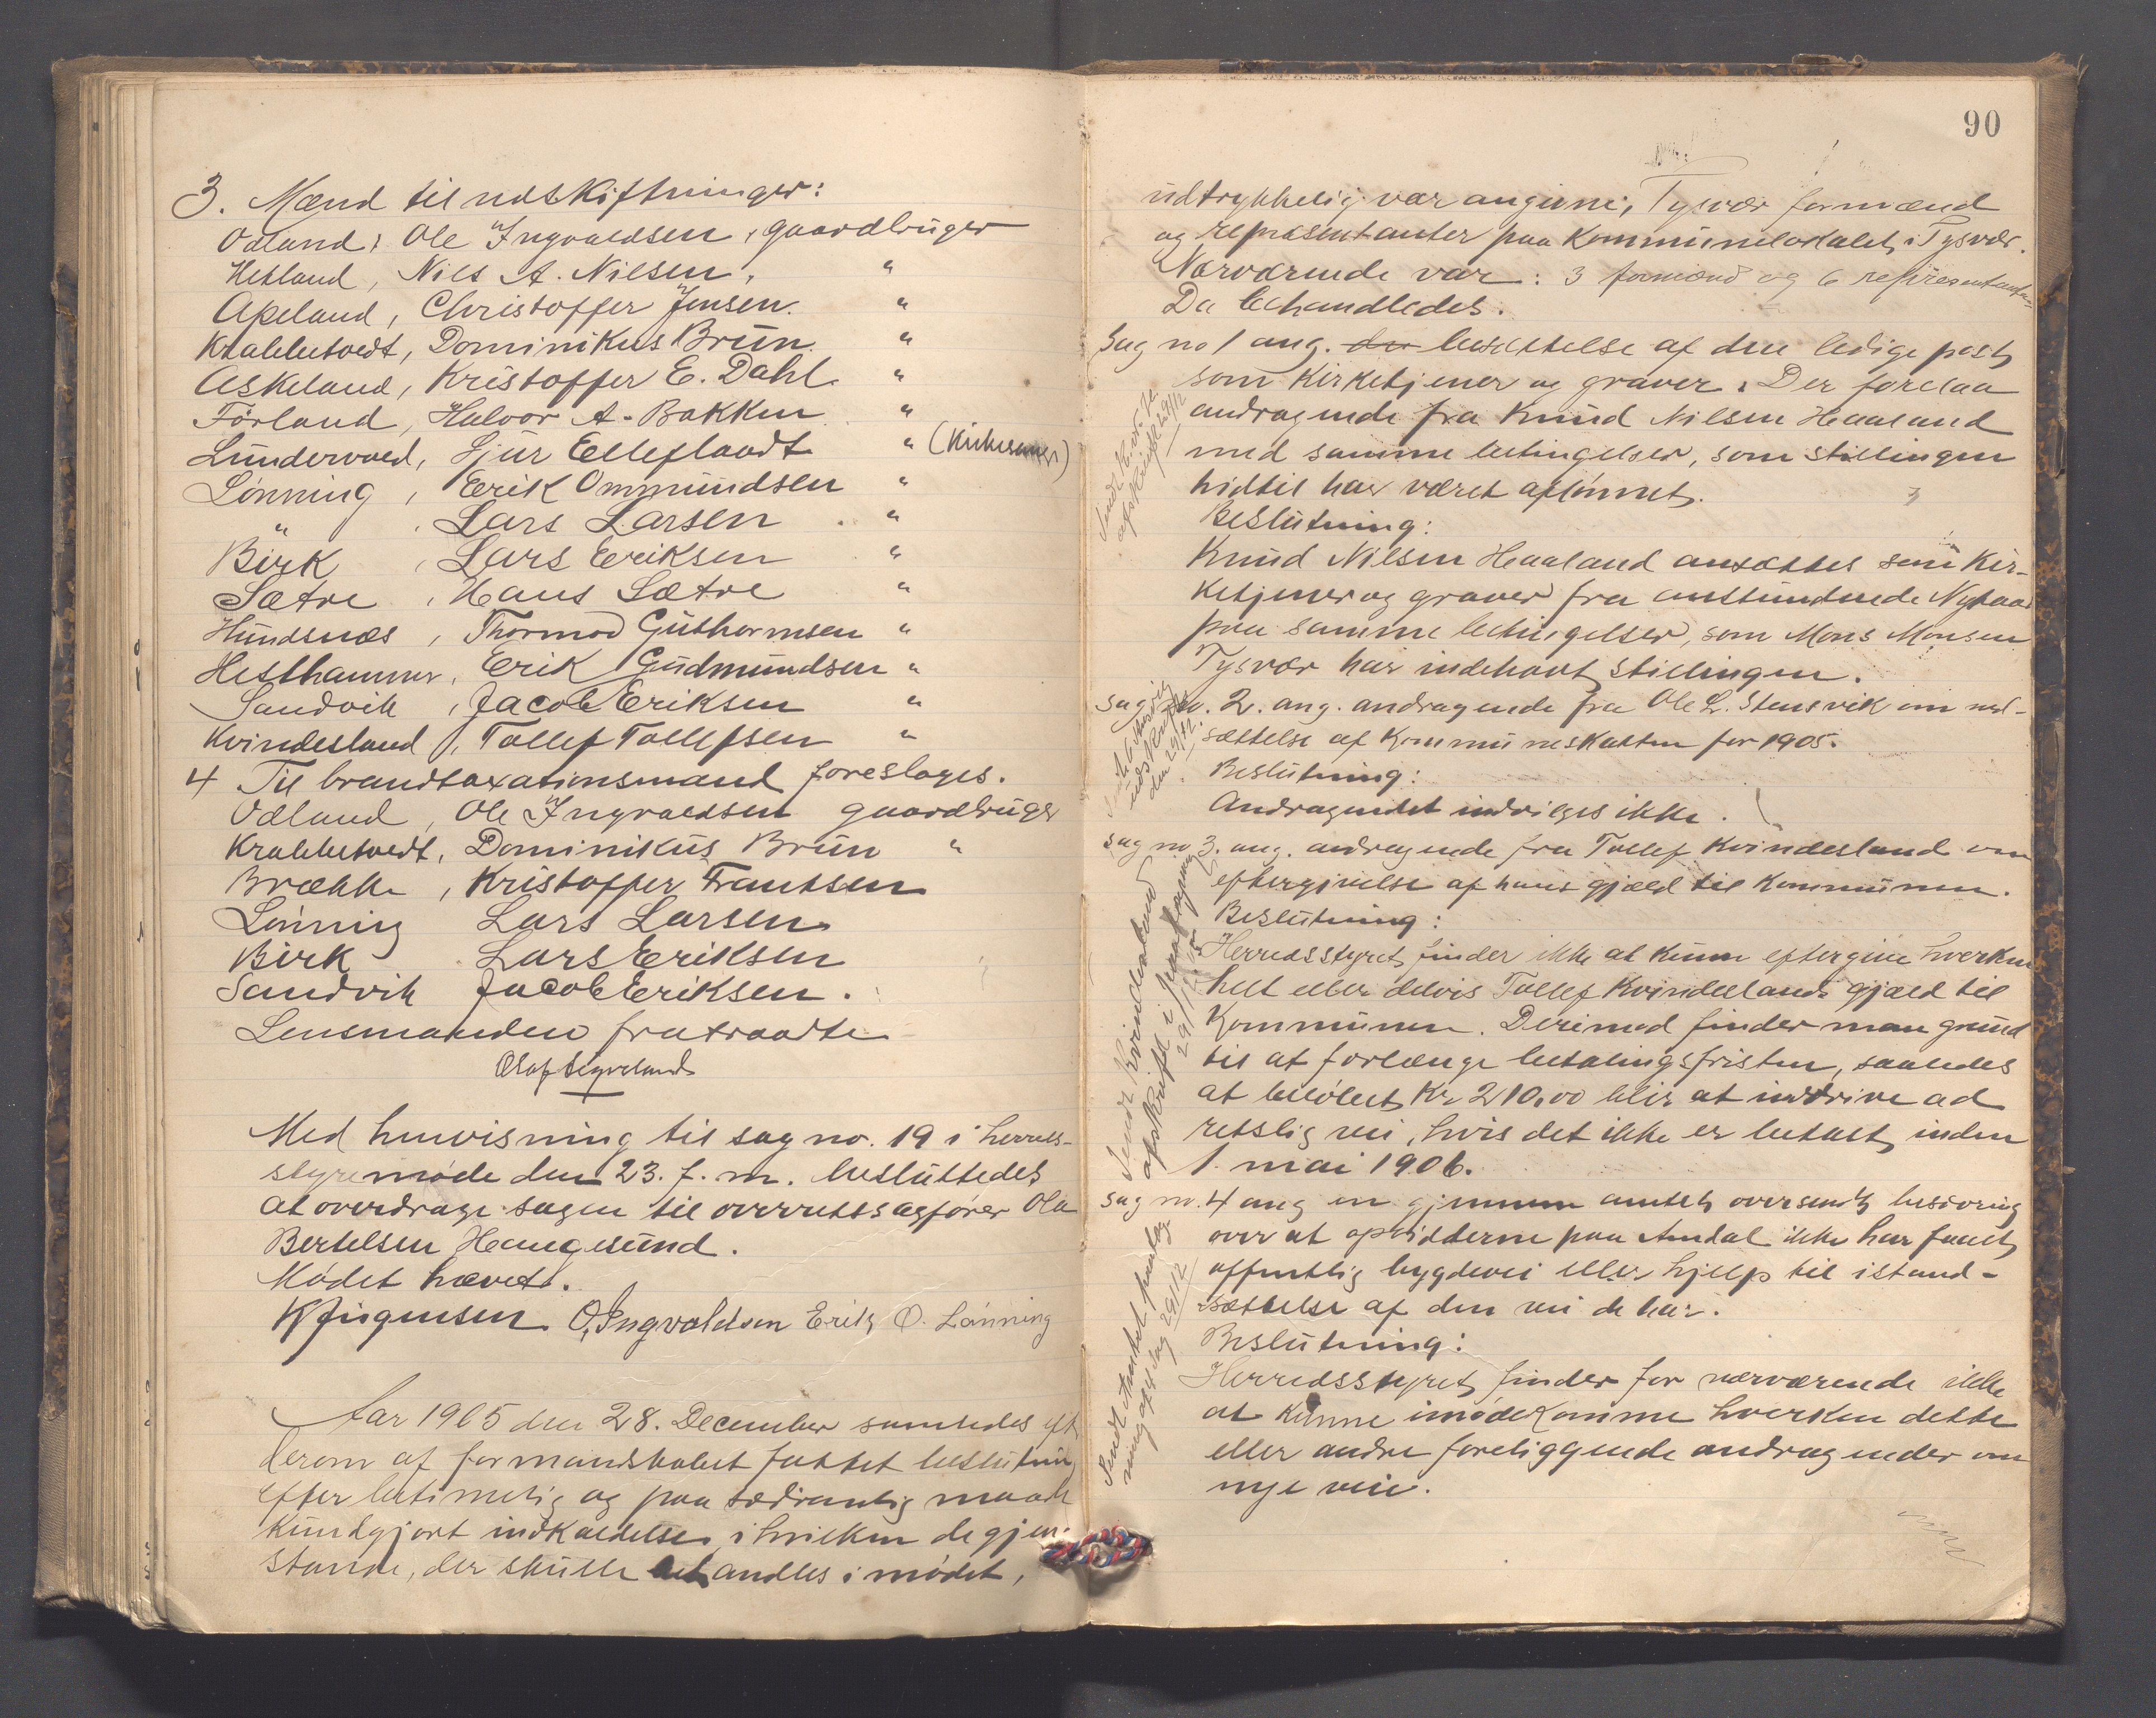 3. Mænd til udskiftninger:
Odland, Ole Ingvaldsen, gaardbruger
Hetland, Nils A. Nilsen, "
Apeland, Christoffer Jensen. "
Krabbetvedt, Dominikus Brün. "
Askeland, Kristoffer E. Dahl "
Førland, Halvor A. Bakken "
Lundervoed, Sjur Eelleflaadt " (Kirkesanger)
Lønning, Eerik Ommundsen "
" , Lars Larsen . "
Birk , Lars Eeriksen "
Sætre , Hans Sætre "
Hundsnæs , Thormod Guthormsen "
Hesthammer, Erik Gudmundsen "
Sandvik , Jacob Eeriksen "
Kvindesland , Tollef Tollefsen "
4 Til brandtaxationsmænd foreslages.
Odland , Ole Ingvaldsen gaardbruger
Krabbetvedt, Dominikus Brün "
Brække , Kristoffer Frantsen
Lønning Lars Larsen
Birk Lars Eriksen
Sandvik Jacob Eeriksen.
Lensmanden fratraadte
Med henvisning til sag no. 19 i herreds-
styremøde den 23. f. m. besluttedes
at overdrage sagen til overretssagfører Ola
Bertelsen Haugesund.
Mødet hævet.
K Jürgensen O. Ingvaldsen Erik O. Lønning
Aar 1905 den 28. December samledes eft.
derom af formandskabet fattet beslutning
efter betimelig og paa sædvanlig maade
kundgjort indkaldelse, i hvilken de gjen-
stande, der skulle behandles i mødet,
90
udtrykkelig var angivne, Tysvær formænd
og repræsentanter paa Kommunelokalet i Tysvær.
Nærværende var: 3 formænd og 6 repræsentanter
Da behandledes.
Sag no 1 ang. den besættelse af den ledige post
som Kirketjener og graver. Der forelaa
andragende fra Knud Nilsen Haaland
med samme betingelser, som stillingen
hidtil har været aflønnet.
Beslutning:
Knud Nilsen Haaland ansættes som Kir-
ketjener og graver fra anstundende Nytaar
paa samme betingelser, som Mons Monsen
Tysvær har indehavt stillingen.
Sag no. 2. ang. andragende fra Ole L. Stensvik om ned-
sættelse af Kommuneskatten for 1905.
Beslutning:
Andragendet indvilges ikke.
Sag no 3. ang. andragende fra Tollef Kvindesland om
eftergivelse af hans gjæld til Kommunen.
Beslutning:
Herredsstyret finder ikke at kunne eftergive hverken
helt eller delvis Tollef Kvindeslands gjæld til
Kommunen. Derimod finder man grund
til at forlænge betalingsfristen, saaledes
at beløbet Kr 210,00 blir at inddrive ad
retslig vei, hvis det ikke er betalt inden
1. mai 1906.
Sag no. 4 ang en gjennem amtet oversendt besværing
over at opsidderne paa Amdal ikke har faaet
offentlig bygdevei eller hjelp til istand-
sættelse af den vei de har.
Beslutning:
Herredsstyret finder for nærværende ikke
at kunne imødekomme hverken dette
eller andre foreliggende andragender om
nye veie.
Sendt Kvindesland
afskrift
29/12 05